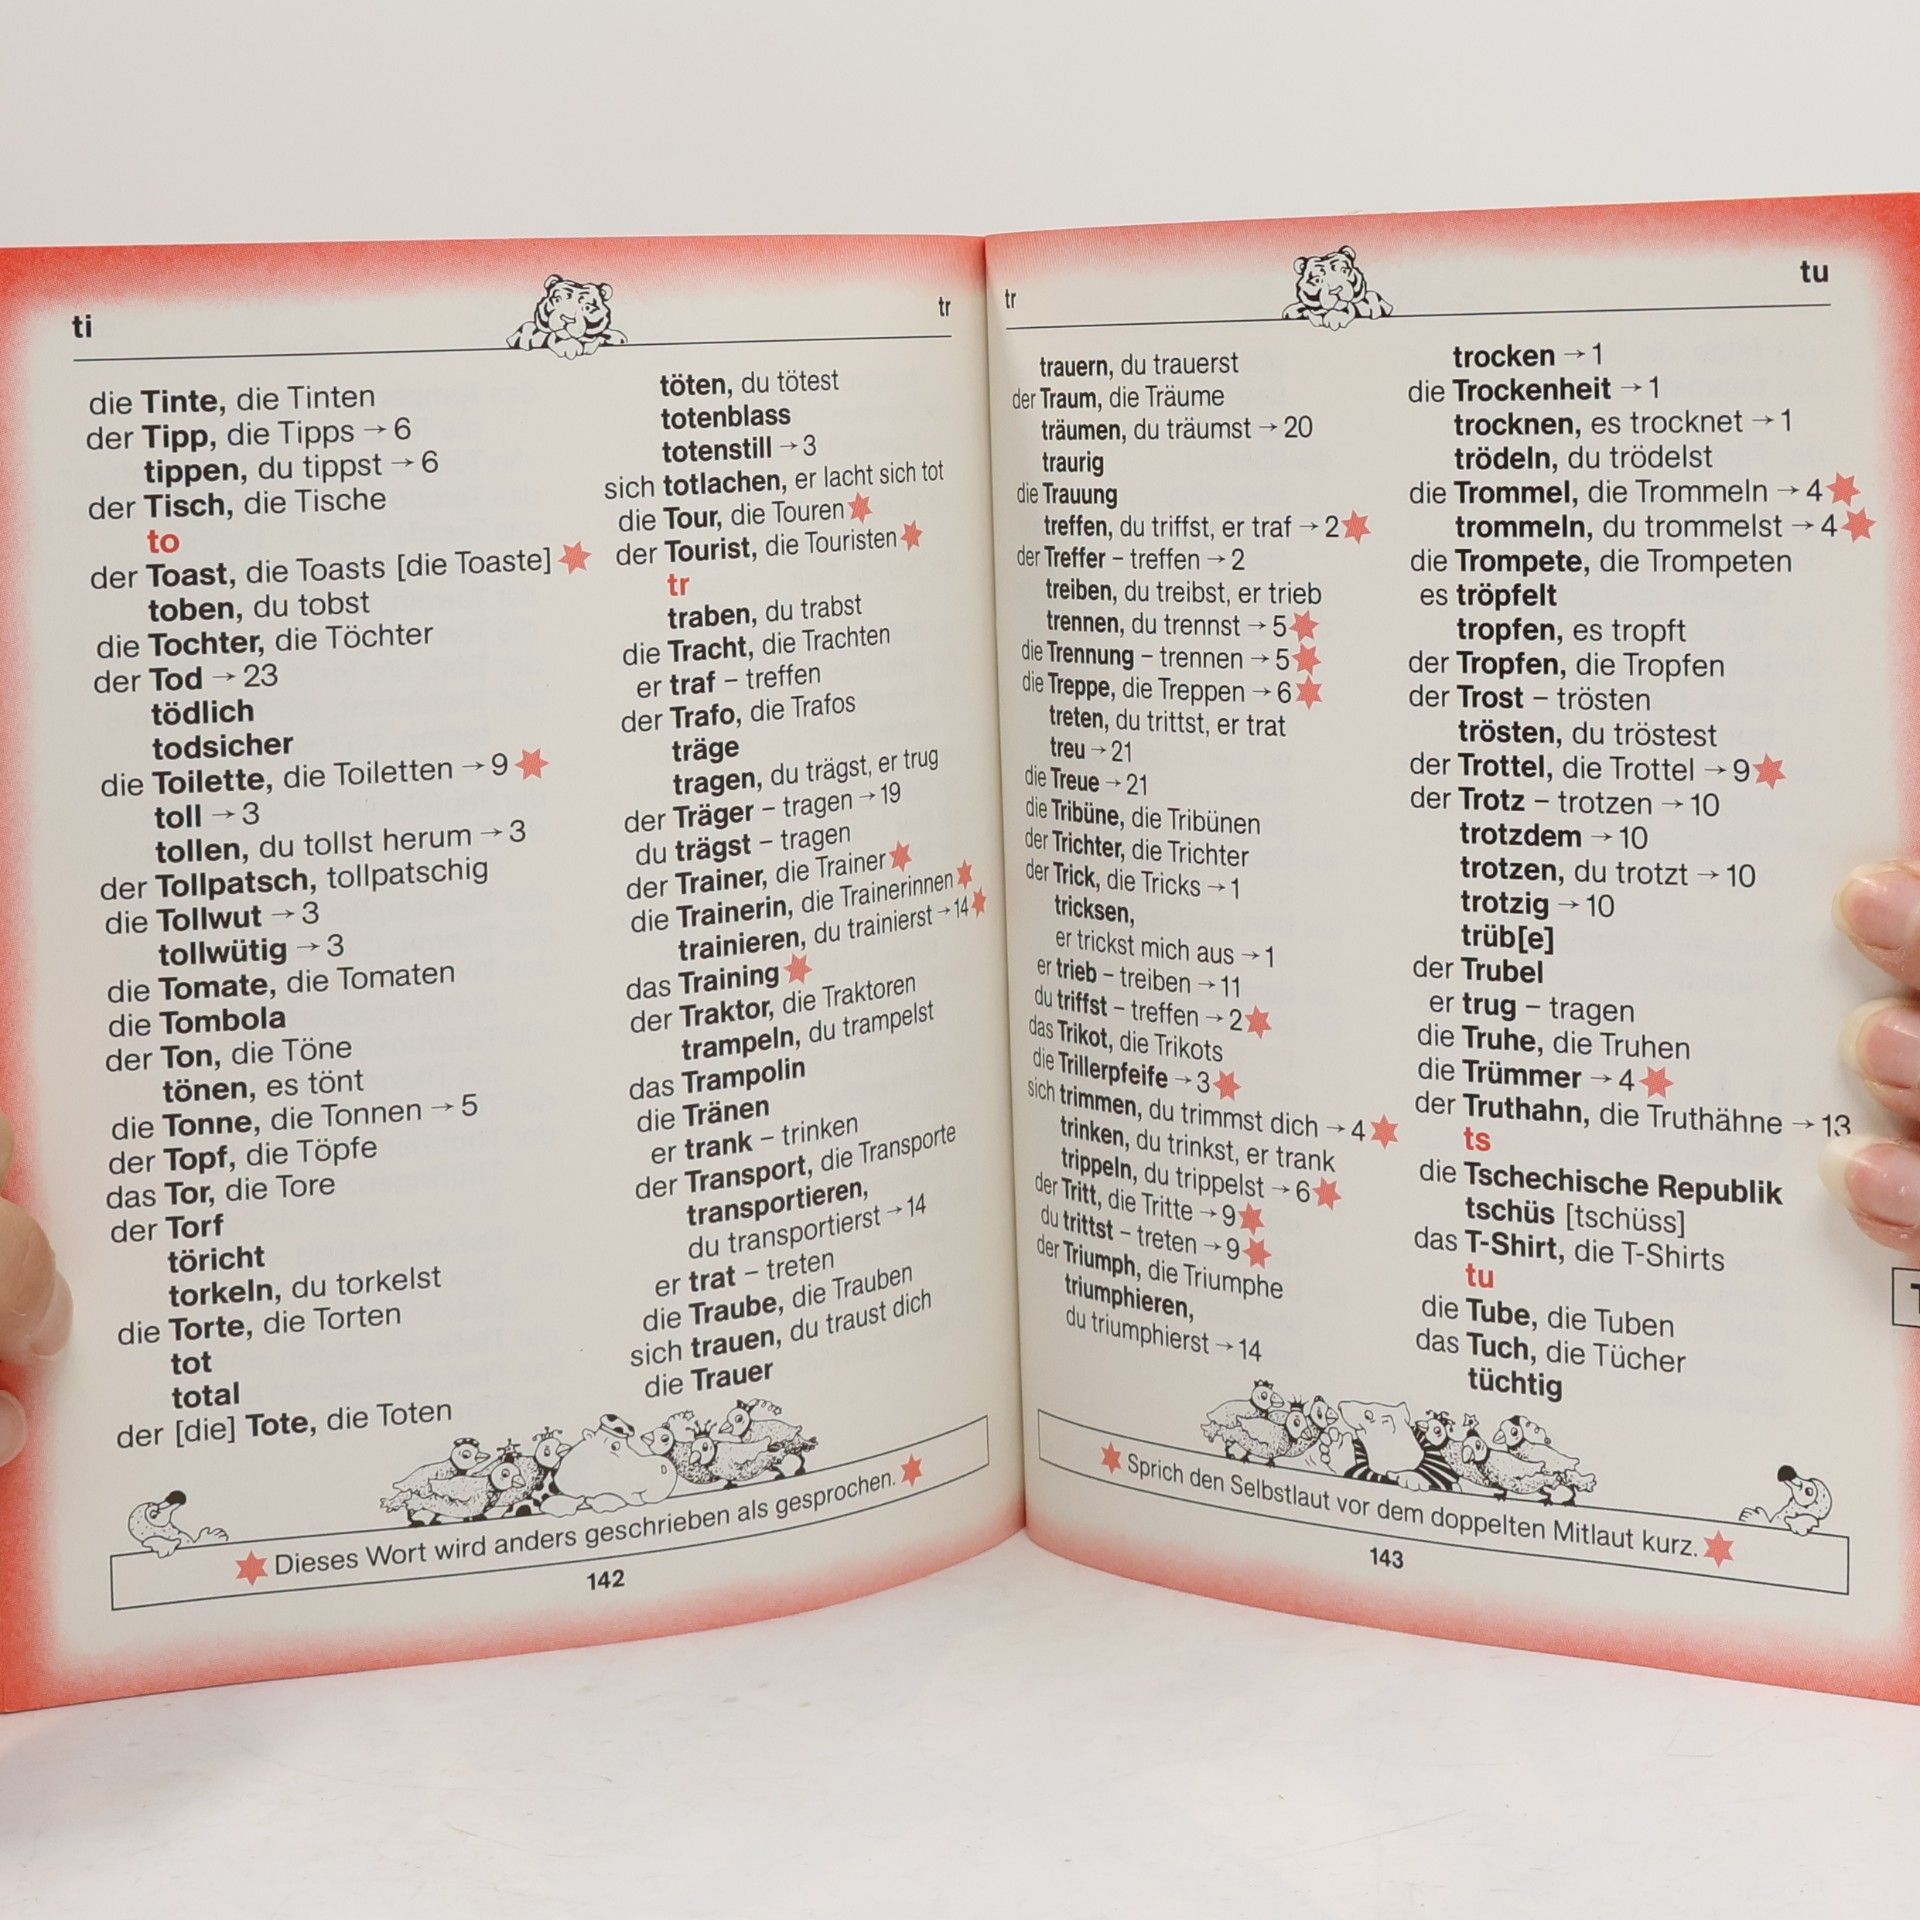 ti
tr
die Tinte, die Tinten
der Tipp, die Tipps → 6
tippen, du tippst → 6
der Tisch, die Tische
to
der Toast, die Toasts [die Toaste]
toben, du tobst
die Tochter, die Töchter
der Tod → 23
tödlich
todsicher
die Toilette, die Toiletten → 9
toll → 3
tollen, du tollst herum → 3
der Tollpatsch, tollpatschig
die Tollwut → 3
tollwütig → 3
die Tomate, die Tomaten
die Tombola
der Ton, die Töne
tönen, es tönt
die Tonne, die Tonnen → 5
der Topf, die Töpfe
das Tor, die Tore
der Torf
töricht
torkeln, du torkelst
die Torte, die Torten
tot
total
der [die] Tote, die Toten
töten, du tötest
totenblass
totenstill → 3
sich totlachen, er lacht sich tot
die Tour, die Touren
der Tourist, die Touristen
tr
traben, du trabst
die Tracht, die Trachten
er traf – treffen
der Trafo, die Trafos
träge
tragen, du trägst, er trug
der Träger – tragen → 19
du trägst – tragen
der Trainer, die Trainer
die Trainerin, die Trainerinnen
trainieren, du trainierst → 14
das Training
der Traktor, die Traktoren
trampeln, du trampelst
das Trampolin
die Tränen
er trank – trinken
der Transport, die Transporte
transportieren,
du transportierst → 14
er trat – treten
die Traube, die Trauben
sich trauen, du traust dich
die Trauer
Dieses Wort wird anders geschrieben als gesprochen.
142
tr
tu
trauern, du trauerst
der Traum, die Träume
träumen, du träumst → 20
traurig
die Trauung
treffen, du triffst, er traf → 2
der Treffer – treffen → 2
treiben, du treibst, er trieb
trennen, du trennst → 5
die Trennung – trennen → 5
die Treppe, die Treppen → 6
treten, du trittst, er trat
treu → 21
die Treue → 21
die Tribüne, die Tribünen
der Trichter, die Trichter
der Trick, die Tricks → 1
tricksen,
er trickst mich aus → 1
er trieb – treiben → 11
du triffst – treffen → 2
das Trikot, die Trikots
die Trillerpfeife → 3
sich trimmen, du trimmst dich → 4
trinken, du trinkst, er trank
trippeln, du trippelst → 6
der Tritt, die Tritte → 9
du trittst – treten → 9
der Triumph, die Triumphe
triumphieren,
du triumphierst → 14
trocken → 1
die Trockenheit → 1
trocknen, es trocknet → 1
trödeln, du trödelst
die Trommel, die Trommeln → 4
trommeln, du trommelst → 4
die Trompete, die Trompeten
es tröpfelt
tropfen, es tropft
der Tropfen, die Tropfen
der Trost – trösten
trösten, du tröstest
der Trottel, die Trottel → 9
der Trotz – trotzen → 10
trotzdem → 10
trotzen, du trotzt → 10
trotzig → 10
trüb[e]
der Trubel
er trug – tragen
die Truhe, die Truhen
die Trümmer → 4
der Truthahn, die Truthähne → 13
ts
die Tschechische Republik
tschüs [tschüss]
das T-Shirt, die T-Shirts
tu
die Tube, die Tuben
das Tuch, die Tücher
tüchtig
Sprich den Selbstlaut vor dem doppelten Mitlaut kurz.
143